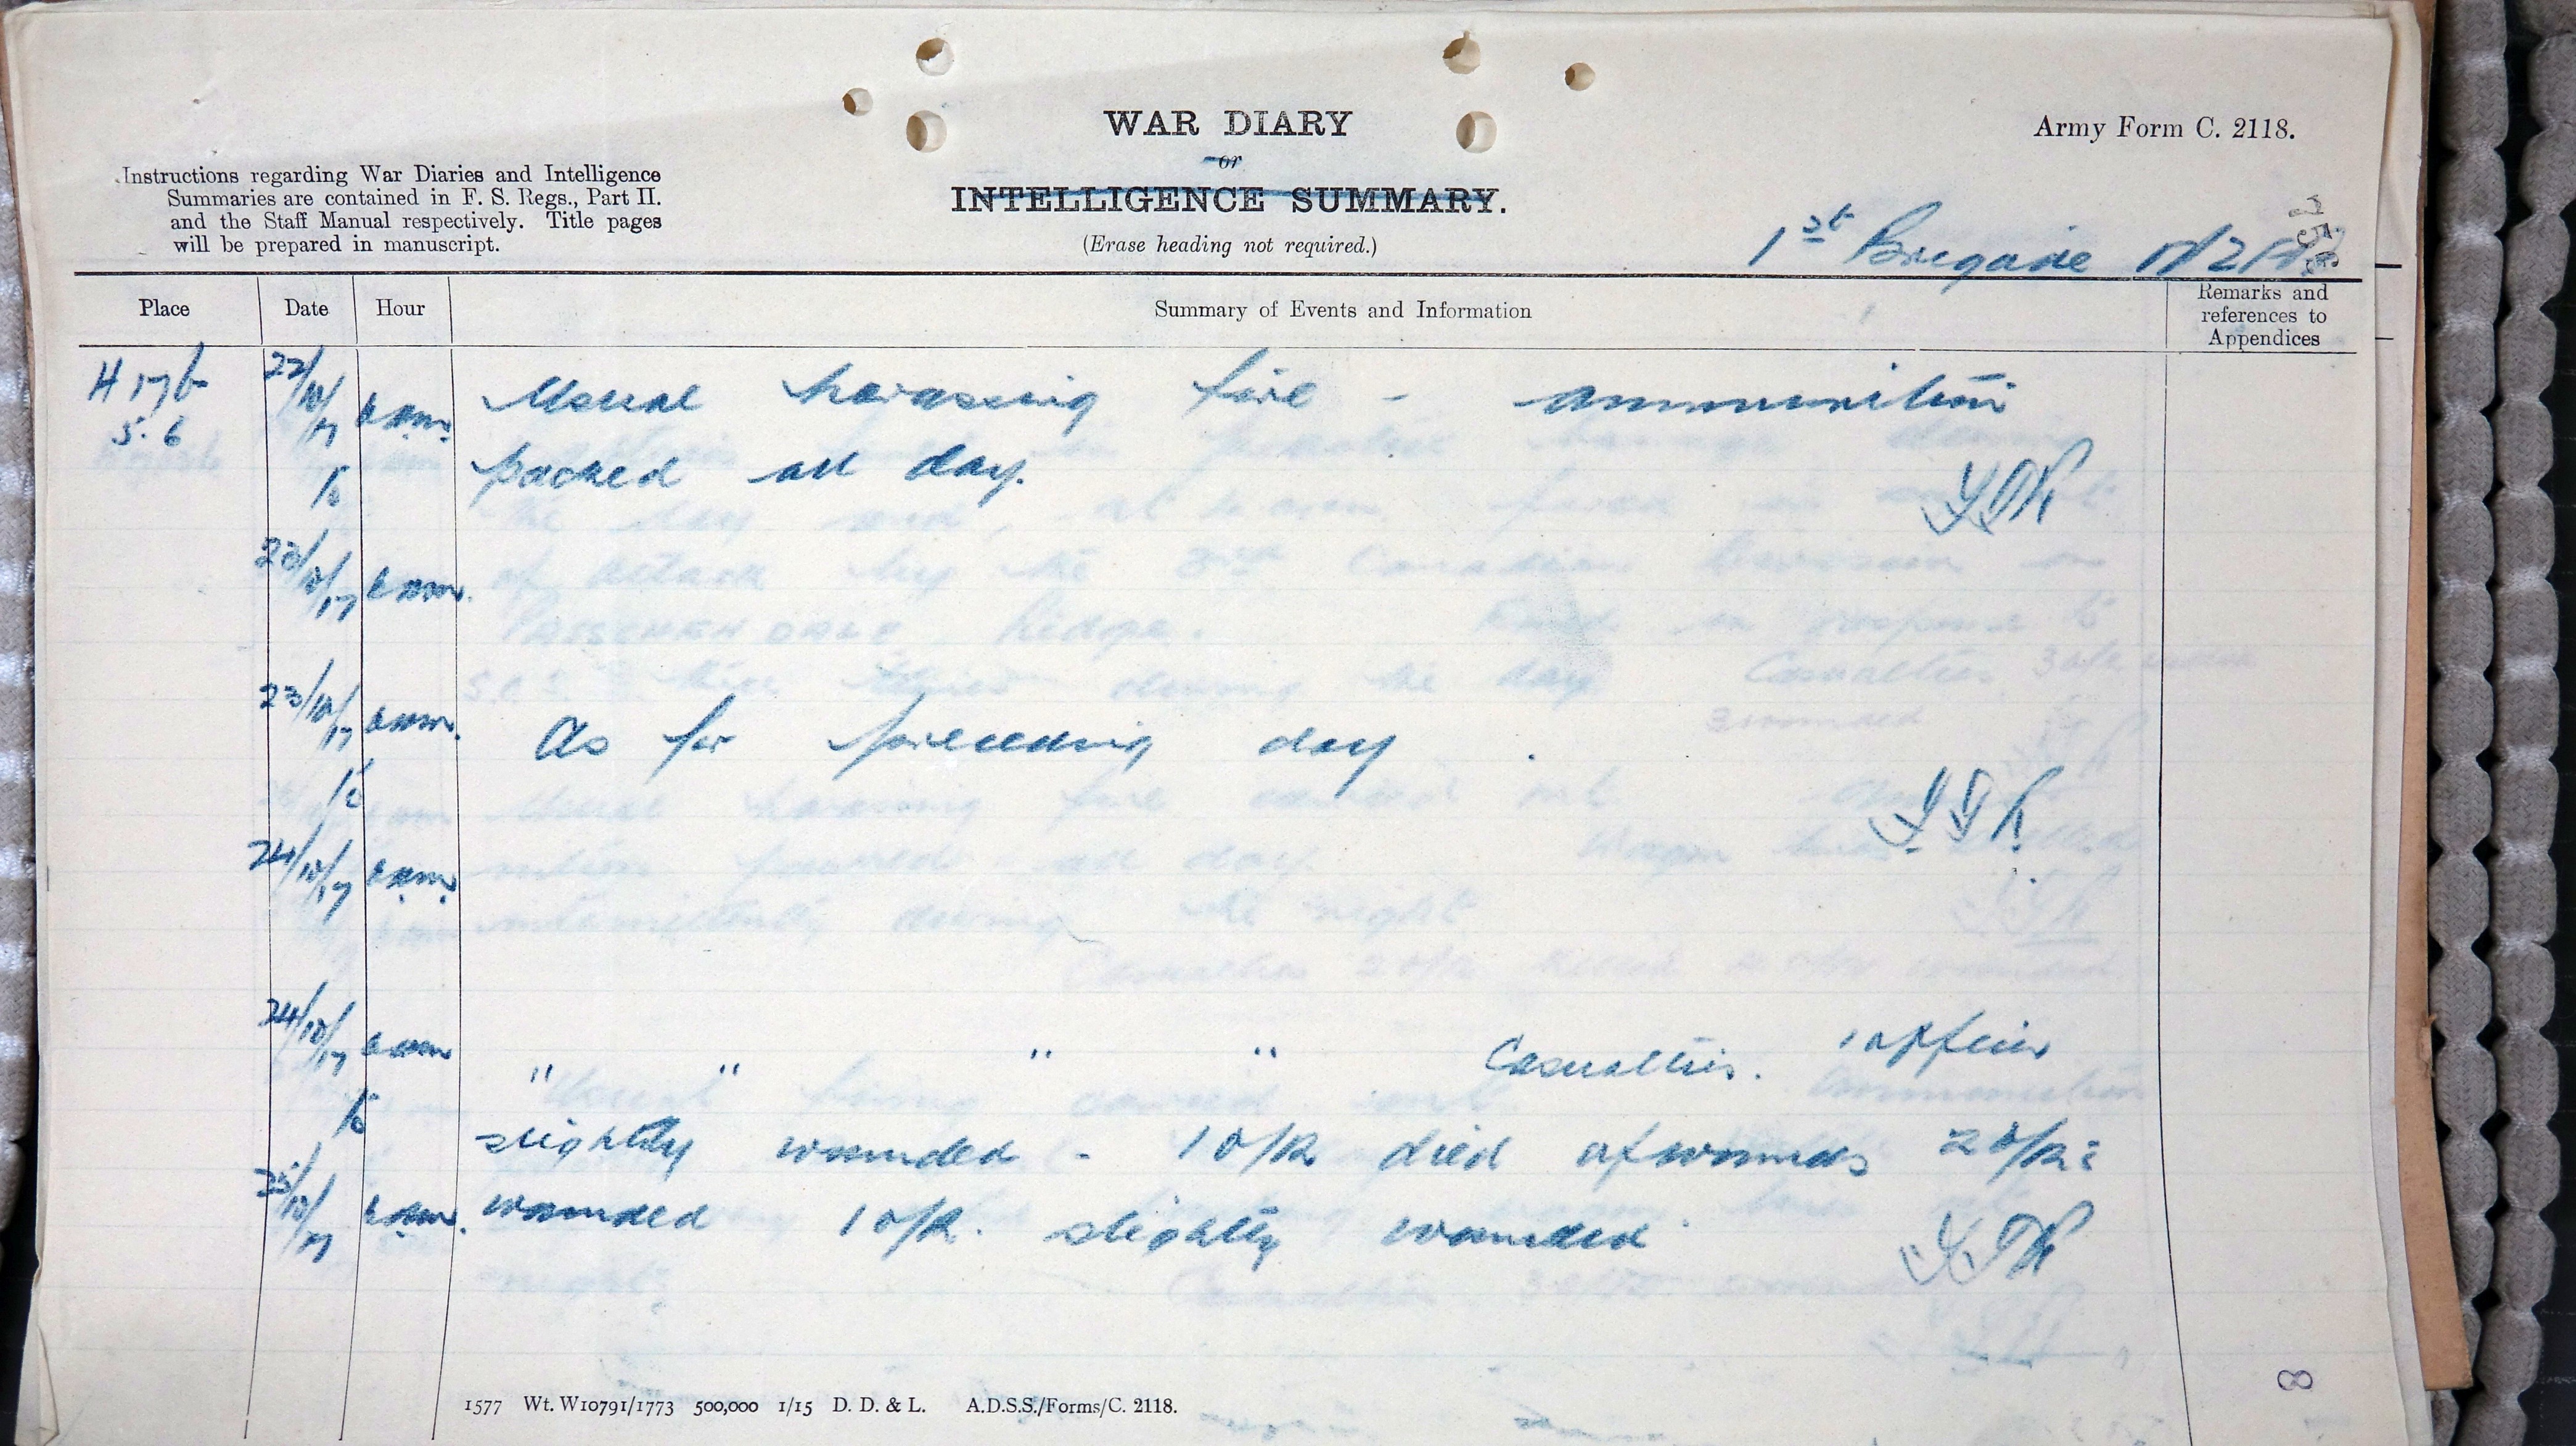 WAR DIARY
or
INTELLIGENCE SUMMARY.
(Erase heading not required.)
Army Form C. 2118.
Instructions regarding War Diaries and Intelligence
Summaries are contained in F. S. Regs., Part II.
and the Staff Manual respectively. Title pages
will be prepared in manuscript.
1st Brigade
Place Date Hour Summary of Events and Information Remarks and
references to
Appendices
H 17 b 22/10/17 6 am. Usual harassing fire - ammunition
5.6
to packed all day.
23/10/17 6 am.
23/10/17 6 am. As for preceding day.
to
24/10/17 6 am.
24/10/17 6 am " " " " Casualties. 1 officer
to slightly wounded - 1 O/R died of wounds 2 O/Rs
25/10/17 6 am. wounded 1 O/R. slightly wounded
1577 Wt. W10791/1773 500,000 1/15 D. D. & L. A.D.S.S./Forms/C. 2118.
8